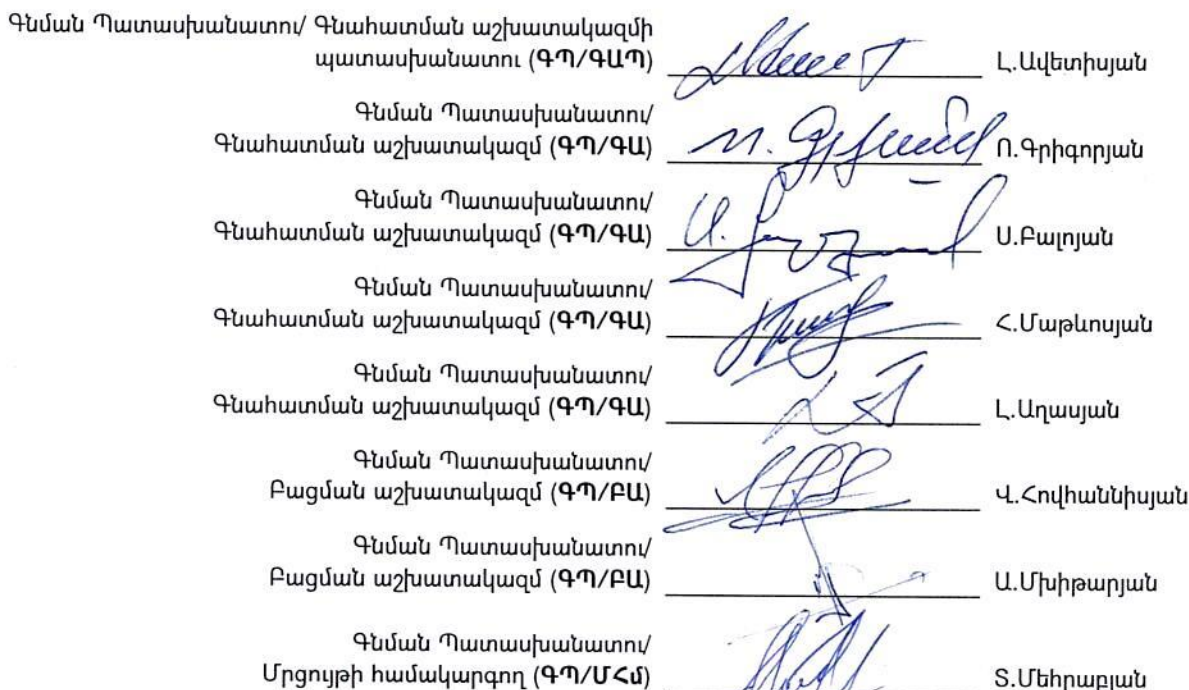 Գնման Պատասխանատու/ Գնահատման աշխատակազմի
պատասխանատու (ԳՊ/ԳԱՊ) Լ.Ավետիսյան
Գնման Պատասխանատու/
Գնահատման աշխատակազմ (ԳՊ/ԳԱ) Ո.Գրիգորյան
Գնման Պատասխանատու/
Գնահատման աշխատակազմ (ԳՊ/ԳԱ) Ս.Բալոյան
Գնման Պատասխանատու/
Գնահատման աշխատակազմ (ԳՊ/ԳԱ) Հ.Մաթևոսյան
Գնման Պատասխանատու/
Գնահատման աշխատակազմ (ԳՊ/ԳԱ) Լ.Աղասյան
Գնման Պատասխանատու/
Բացման աշխատակազմ (ԳՊ/ԲԱ) Վ.Հովհաննիսյան
Գնման Պատասխանատու/
Բացման աշխատակազմ (ԳՊ/ԲԱ) Ա.Մխիթարյան
Գնման Պատասխանատու/
Մրցույթի համակարգող (ԳՊ/ՄՀմ) Տ.Մեհրաբյան